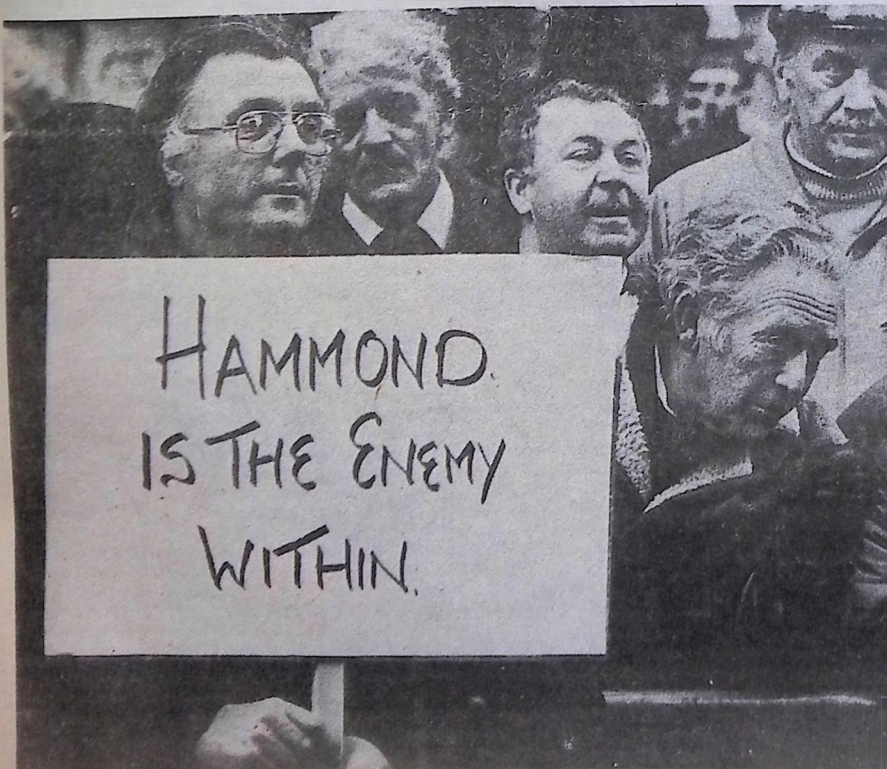 HAMMOND.
IS THE ENEMY
WITHIN.